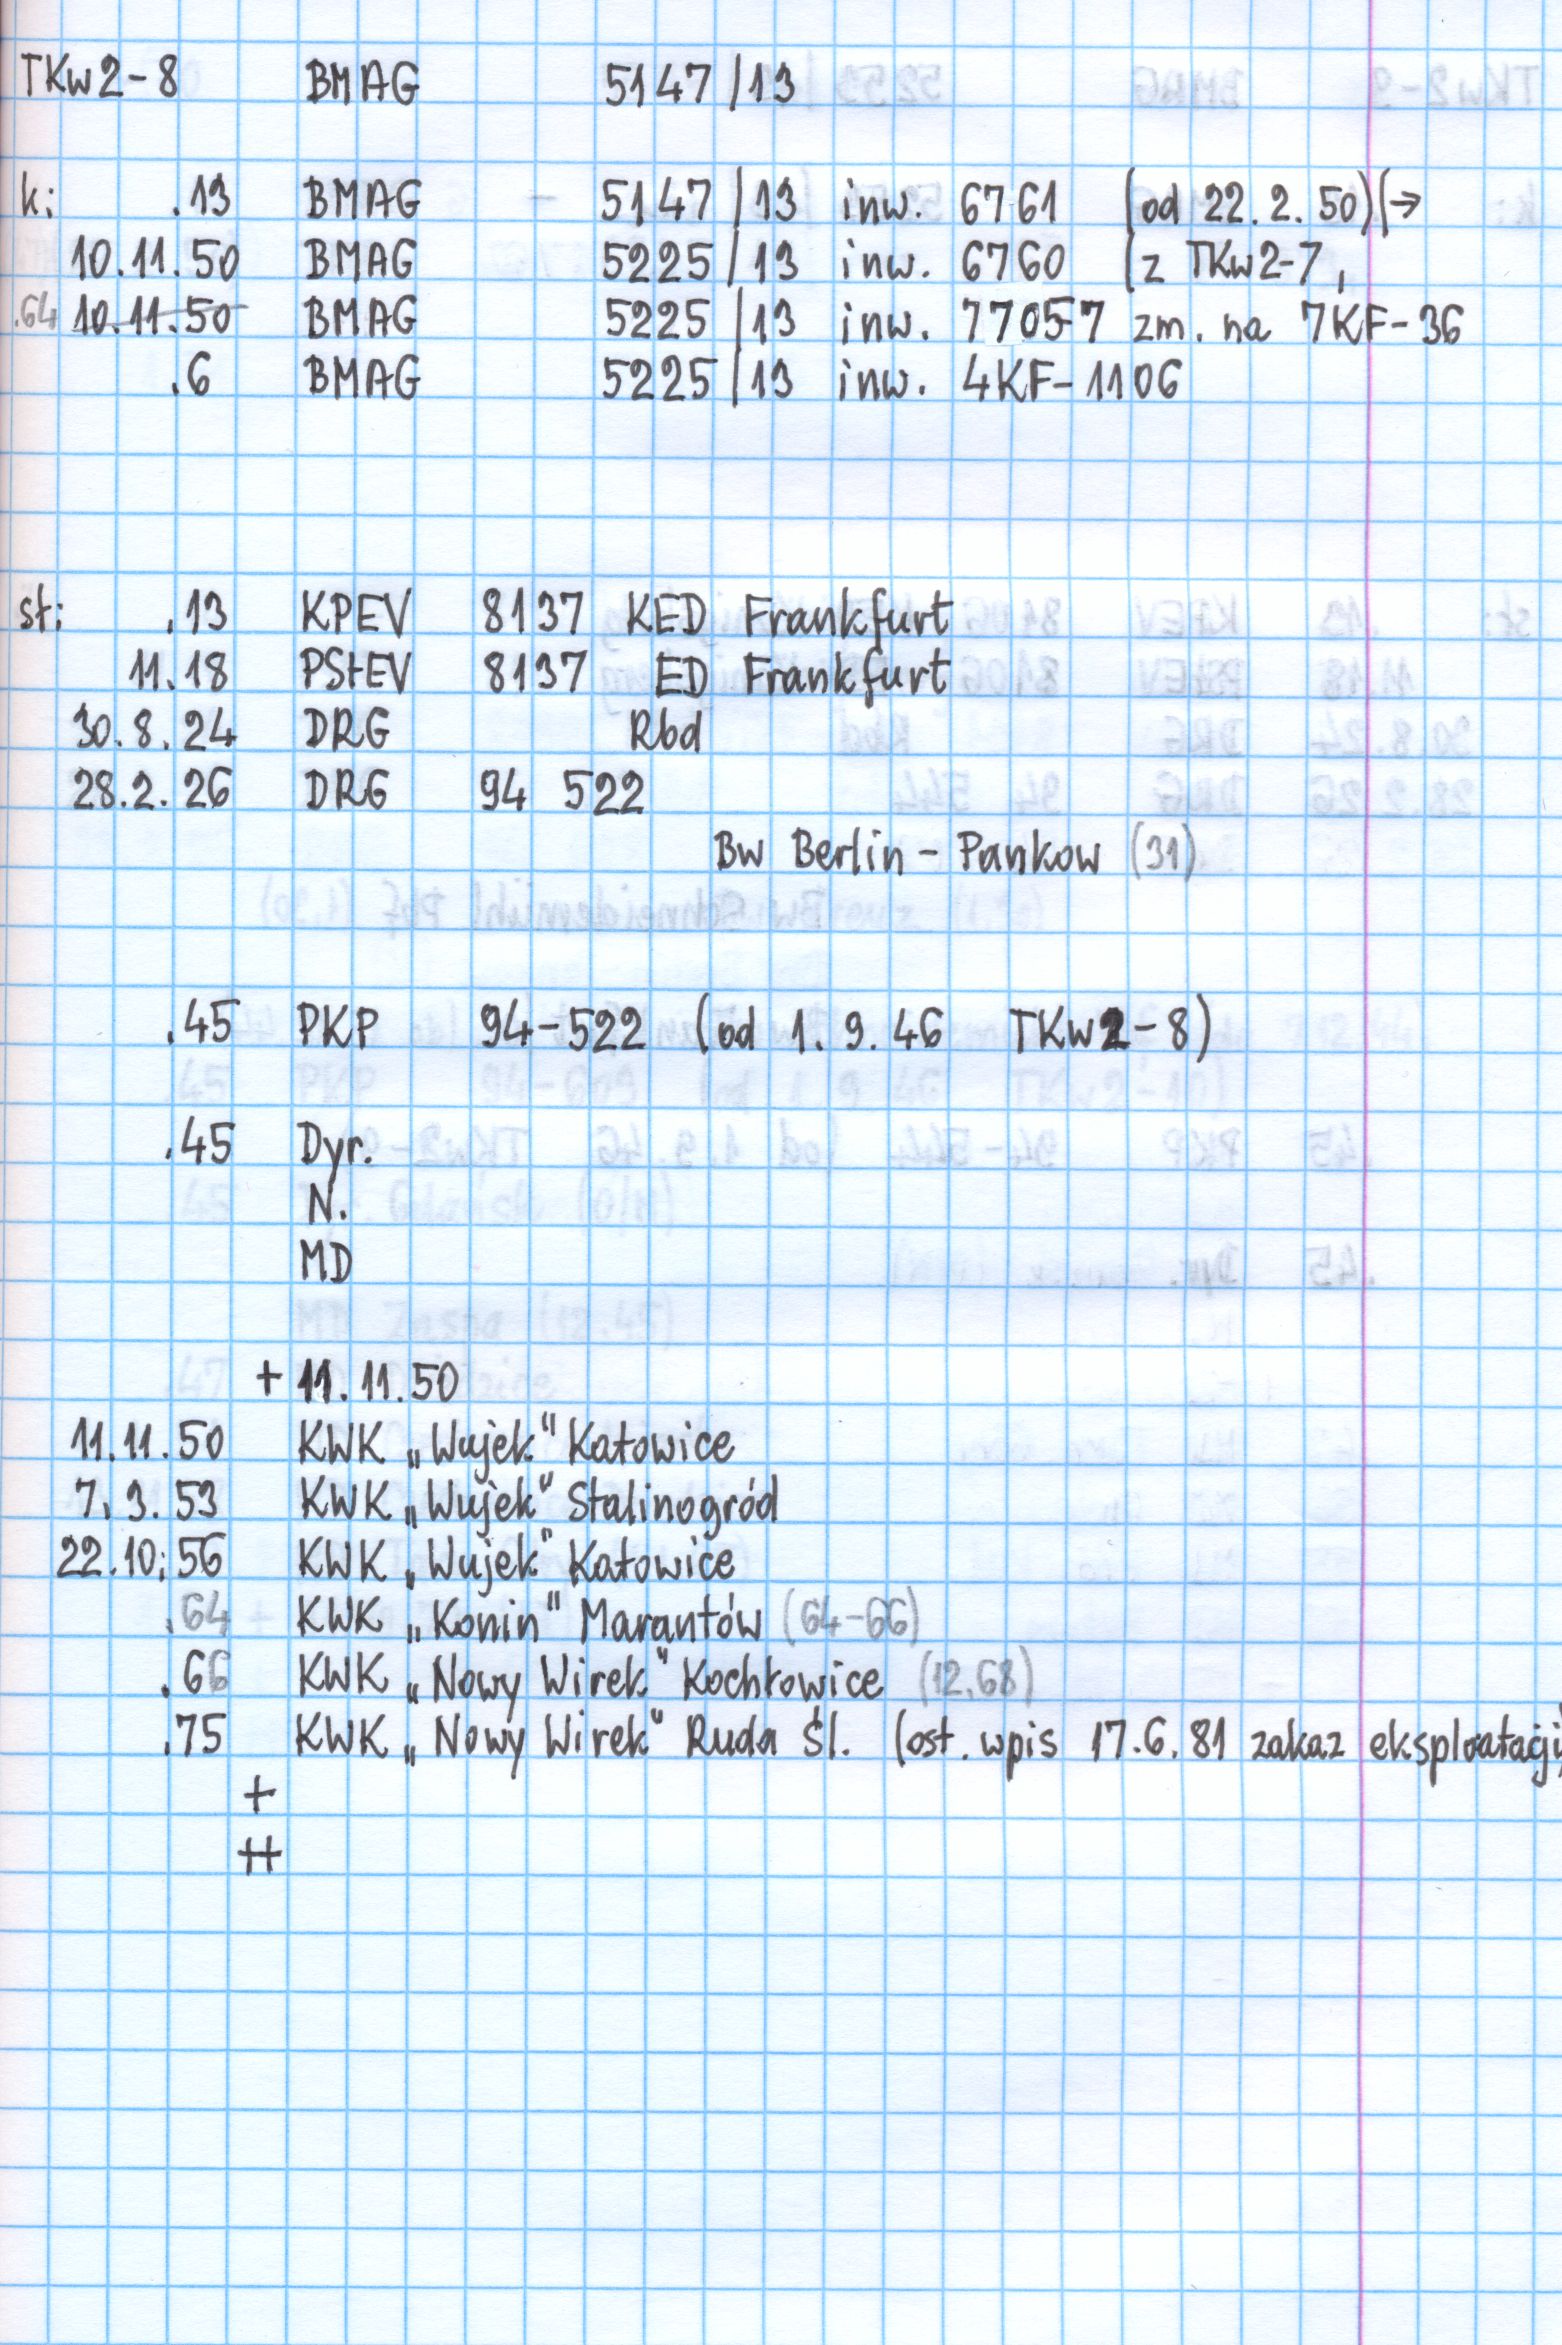 TKw2-8 BMAG 5147/13
k: .13 BMAG - 5147/13 inw. 6761 (od 22.2.50)(→
10.11.50 BMAG 5225/13 inw. 6760 (z TKw2-7,
.64 10.11.50 BMAG 5225/13 inw. 77057 zm. na 7KF-36
.6 BMAG 5225/13 inw. 4KF-1106
st: .13 KPEV 8137 KED Frankfurt
11.18 PStEV 8137 ED Frankfurt
30.8.24 DRG Rbd
28.2.26 DRG 94 522
Bw Berlin-Pankow (31)
.45 PKP 94-522 (od 1.9.46 TKw2-8)
.45 Dyr.
N.
MD
+ 11.11.50
11.11.50 KWK „Wujek" Katowice
7.3.53 KWK „Wujek" Stalinogród
22.10.56 KWK „Wujek" Katowice
.64 KWK „Konin" Marantów (64-66)
.66 KWK „Nowy Wirek" Kochłowice (12.68)
.75 KWK „Nowy Wirek" Ruda Śl. (ost. wpis 17.6.81 zakaz eksploatacji)
+
++